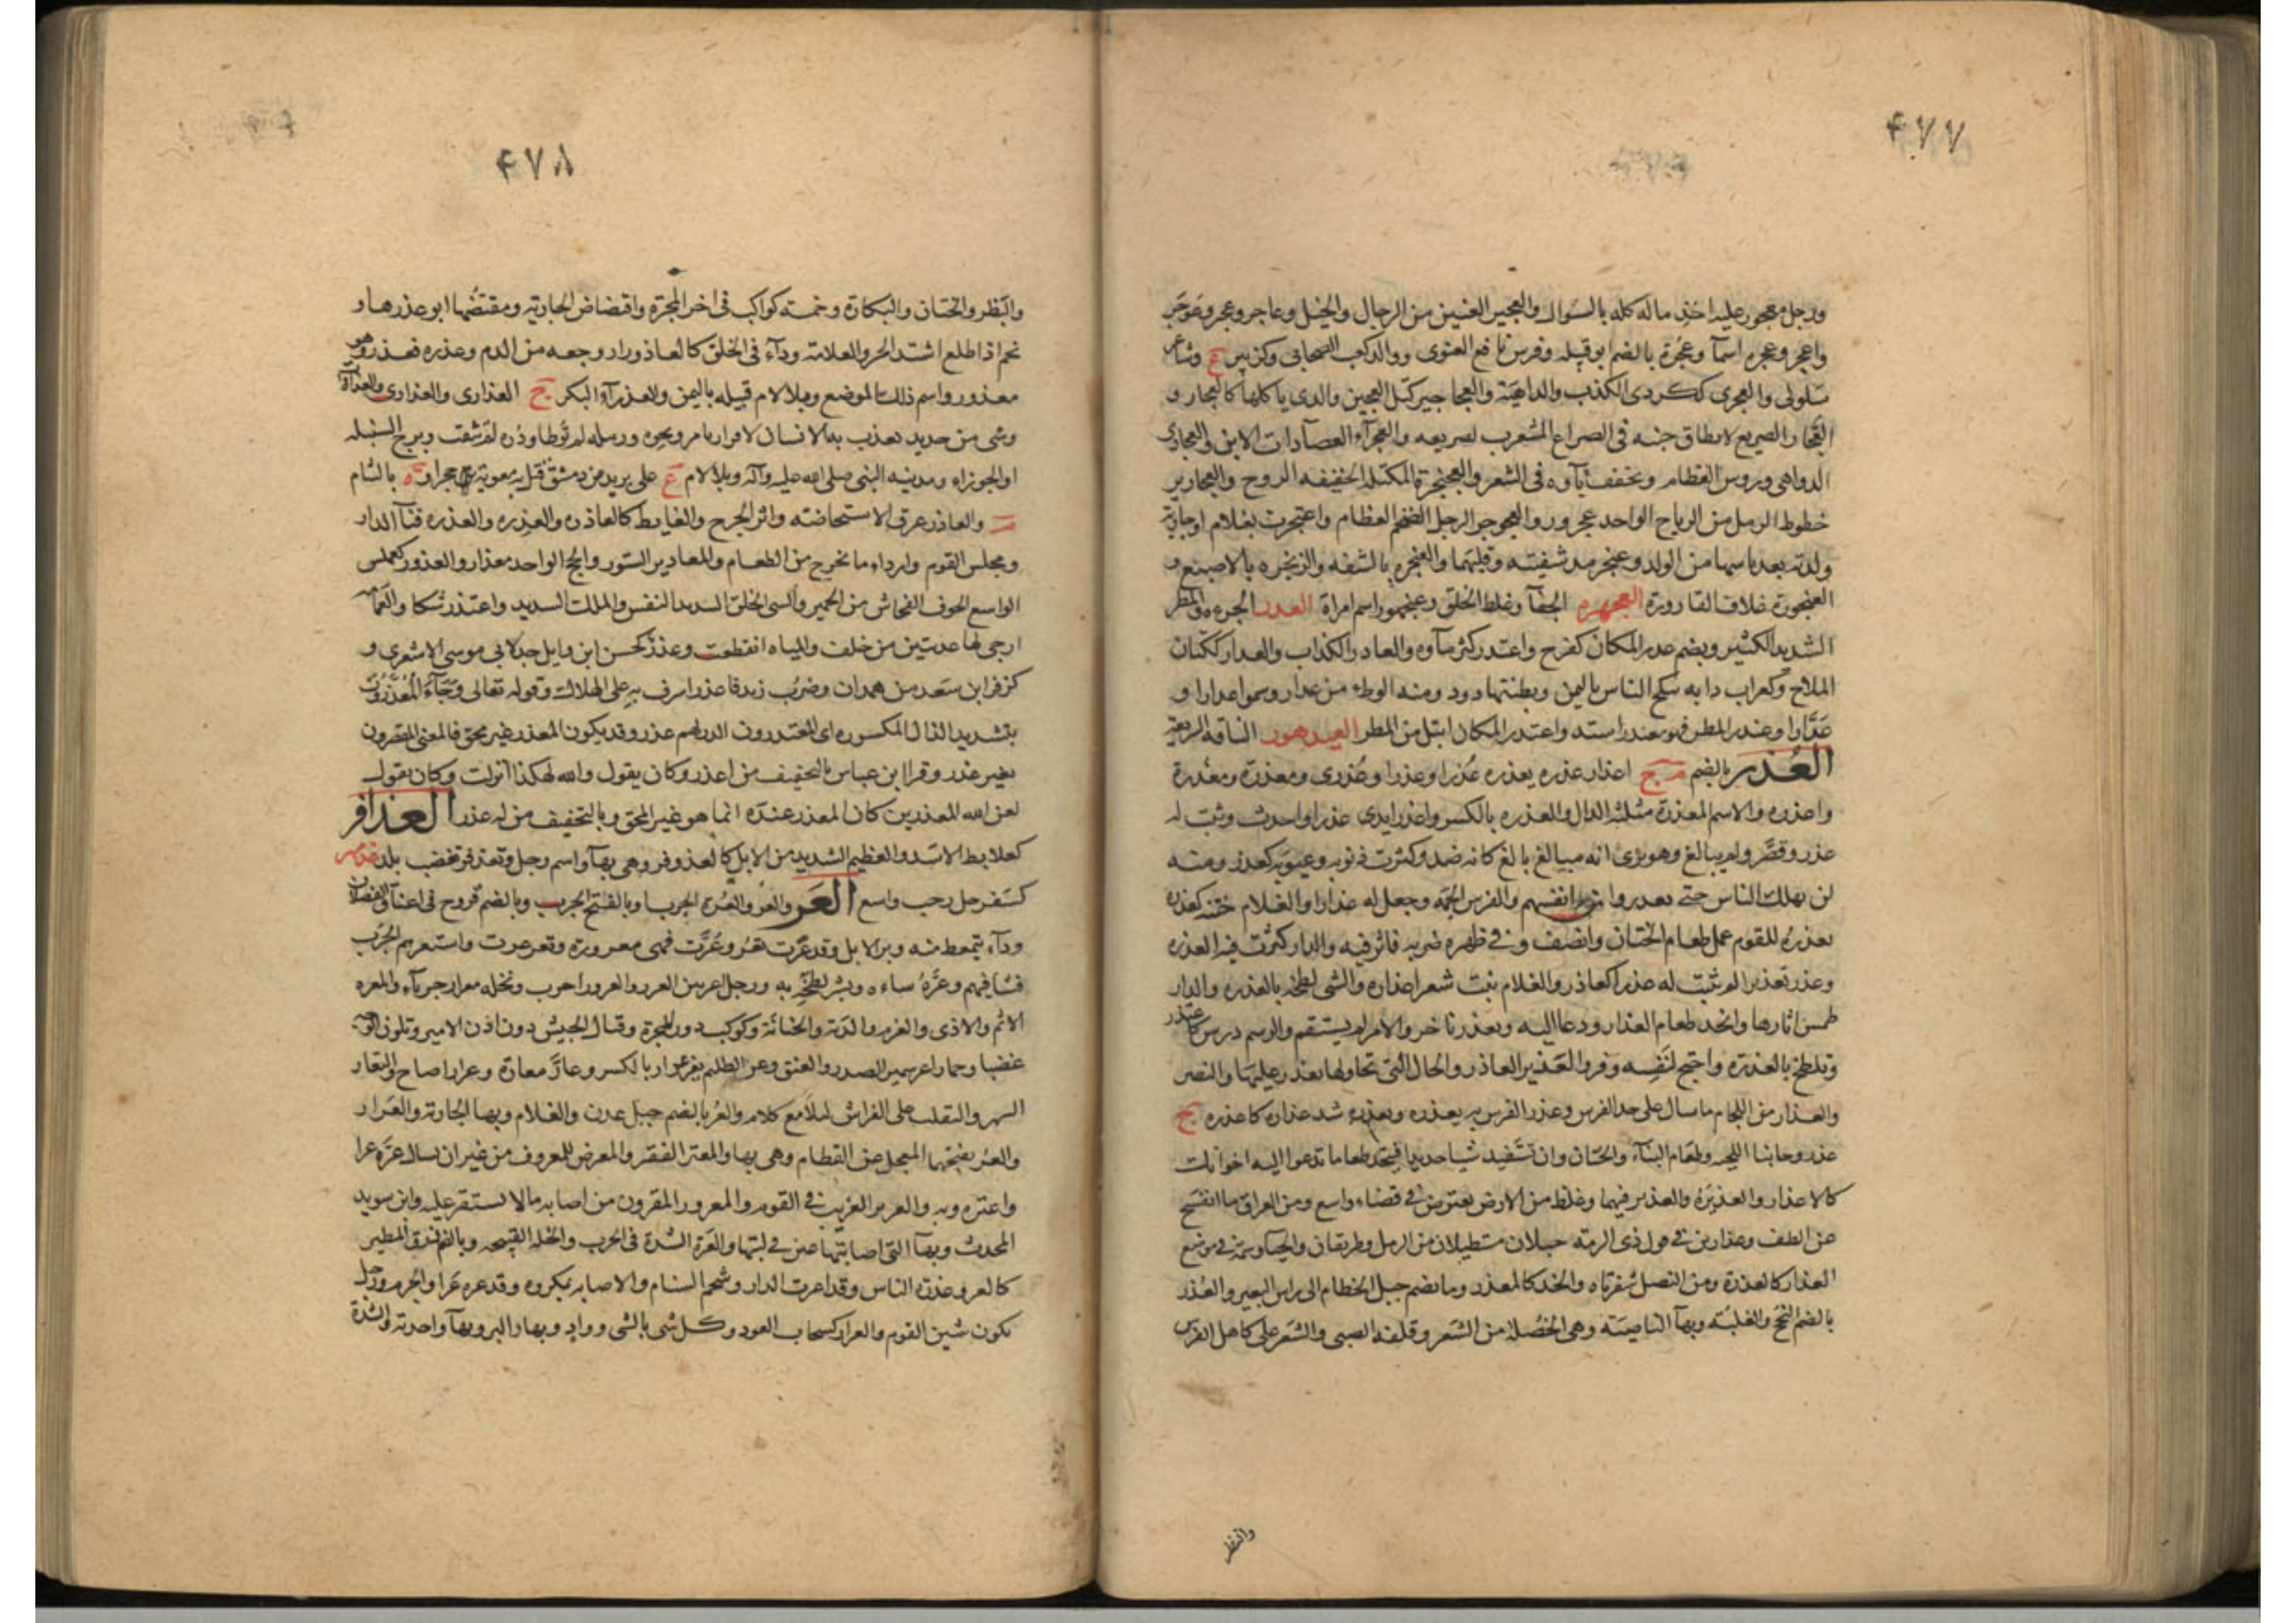 ۴۷۷
ورجل معجور عليه اخذ ماله كله بالسوال والعجير العنين من الرجال والخيل وعاجر وعجر وعوجر
واعجر وعجره اسمآ وعجرة بالضم ابو قبيله وفرس نافع الغنوى ووالد كعب الصحابى وكزبير ع وشاعر
سلولى والعجرى ككردى الكذب والداهية والعجاجير كتل العجين والدى ياكلها كالعجار و
العجار الصريع لايطاق جنبه فى الصراع المشعرب لصريعه والعجرآء العصآ ذات الابن والعجارى
الدواهى وروس العظام وتخفف ياوه فى الشعر والعجنجرة المكتلة الخفيفه الروح والعجارير
خطوط الرمل من الرياح الواحد عجرور والعجوجر الرجل الضخم العظام واعتجرت بغلام اوجارية
ولدته بعد ياسها من الولد وعنجر مد شفيته وقلبهما والعنجره بالشفه والزنجره بالاصبع و
العنجورة غلاف القارورة العجهره الجفآ وغلظ الخلق وعنجهور اسم امراة العدر الجرءه والمطر
الشديد الكثير وبضم عدر المكان كفرح واعتدر كثر ماوه والعادر الكذاب والعدار ككتان
الملاح وكغراب دابه تنكح الناس باليمن وبطنتها دود ومنه الوطء من عدار وسموا عدارا و
عدارا وعندر المطر فهو معندر اشتد واعتدر المكان ابتل من المطر العيدهور الناقه السريعة
العذر بالضم م ج اعذار عذره يعذره عذرا وعذرا وعذرى ومعذرة ومعذرة
واعذره والاسم المعذرة مثلثه الذال والعذره بالكسر واعذر ابدى عذرا واحدث وثبت له
عذر وقصر ولم يبالغ وهو يرى انه مبالغ بالغ كانه ضد وكثرت ذنوبه وعيوبه كعذر ومنه
لن يهلك الناس حتى يعذروا من انفسهم والفرس الجمه وجعل له عذارا والغلام ختنه كعذره
يعذره للقوم عمل طعام الختان وانصف وفى ظهره ضربه فاثر فيه والدار كثرت فيه العذره
وعذر تعذيرا لم يثبت له عذر كالعاذر والغلام نبت شعر عذاره والشى لطخه بالعذره والدار
طمس اثارها واتخذ طعام العذار ودعا اليه وتعذر تاخر والامر لم يستقم والرسم درس كاعتذر
وتلطخ بالعذره واحتج لنفسه وفر والعذير العاذر والحال التى تحاولها تعذر عليها والنصير
والعذار من اللجام ما سال على خد الفرس وعذر الفرس به يعذره ويعذره شد عذاره كاعذره ج
عذر وجانبا اللحيه وطعام البنآء والختان وان تستفيد شيا جديدا فيتخذ طعاما تدعوا اليه اخوانك
كالاعذار والعذيره والعذير فيهما وغلظ من الارض يعترض فى فضاء واسع ومن العراق ما انفسح
عن الطف وعذارين فى قول ذى الرمه حبلان مستطيلان من الرمل وطريقان والحيآ وسمه فى موضع
العذار كالعذرة ومن النصل شفرتاه والخد كالمعذر وما يضم حبل الخطام الى راس البعير والعذر
بالضم النجح والغلبة وبهآ الناصية وهى الخصلة من الشعر وقلفه الصبى والشعر على كاهل الفرس
والبظر
۴۷۸
والبظر والختان والبكارة وخمسه كواكب فى اخر المجرة وافتضاض الجارية ومقتضها ابو عذرها و
نجم اذا طلع اشتد الحر والعلامة ودآء فى الحلق كالعاذور او وجعه من الدم وعذره فعذر وهو
معذور واسم ذلك الموضع وبلا لام قبيله باليمن والعذرآء البكر ج العذارى والعذارى والعذرآوات
وشى من حديد يعذب به الانسان لاقرار بامر ونحوه ورمله لم توطا ودره لم تثقب وبرج السنبله
او الجوزاء ومدينه النبى صلى الله عليه وآله وبلا لام ع على بريد من دمشق قتل به معوية حجرا و ة بالشام
م والعاذر عرق الاستحاضة واثر الجرح والغايط كالعاذره والعذره والعذره فنآ الدار
ومجلس القوم واردا ما يخرج من الطعام والمعاذير الستور والحجج الواحد معذار والعذور كعملس
الواسع الجوف الفحاش من الحمير والسى الخلق الشديد النفس والملك الشديد واعتذر شكا والعمامه
ارخى لها عذبتين من خلف والمياه انقطعت وعذر كحسن ابن وايل جد لابى موسى الاشعرى و
كزفر ابن سعد من همدان وضرب زيد فاعذر اسرف به على الهلاك وقوله تعالى وجآء المعذرون
بتشديد الذال المكسوره اى المعتذرون الذين لهم عذر وقد يكون المعذر غير محق فالمعنى المقصرون
بغير عذر وقرا ابن عباس بالتخفيف من اعذر وكان يقول والله لهكذا انزلت وكان يقول
لعن الله المعذرين كان المعذر عنده انما هو غير المحق وبالتخفيف من له عذر العذافر
كعلابط الاسد والعظيم الشديد من الابل كالعذوفر وهى بهآ واسم رجل وتعذفر تغضب بلد عذمر
كسفرجل رحب واسع العر والعر والعرة الجرب او بالفتح الجرب وبالضم قروح فى اعناق الفصلان
ودآء يتمعط منه وبر الابل وقد عرت تعر وعرت فهى معرورة وتعرعرت واستعرهم الجرب
فشا فيهم وعره ساءه وبشر لطخه به ورجل اعر بين العرر والعرور اجرب ونخله معرار جرباء والمعره
الاثم والاذى والغرم والدية والخيانة وكوكب دون المجرة وقتال الجيش دون اذن الامير وتلون الوجه
غضبا وحمار اعر سمين الصدر والعنق وعر الظليم يعر عرارا بالكسر وعار معارة وعرارا صاح والتعار
السهر والتقلب على الفراش ليلا مع كلام والعر بالضم جبل عدن والغلام وبهآ الجارية والعرار
والعر بفتحهما المعجل عن الفطام وهى بهآ والمعتر الفقير والمعرض للمعروف من غير ان يسال عره عرا
واعتره وبه والعرير الغريب فى القوم والمعرور المقرون من اصابه مالا يستقر عليه وابن سويد
المحدث وبهآ التى اصابتها عين فى لبنها والعرة الشدة فى الحرب والخله القبيحه وبالضم ذرق الطير
كالعر وعذرة الناس وقد اعرت الدار وشحم السنام والاصابه بمكروه وقد عره عرا والجرم ورجل
يكون شين القوم والعرار كسحاب العود وكل شى بالشى وواد وبهار البر وبهآ واحدته والشدة